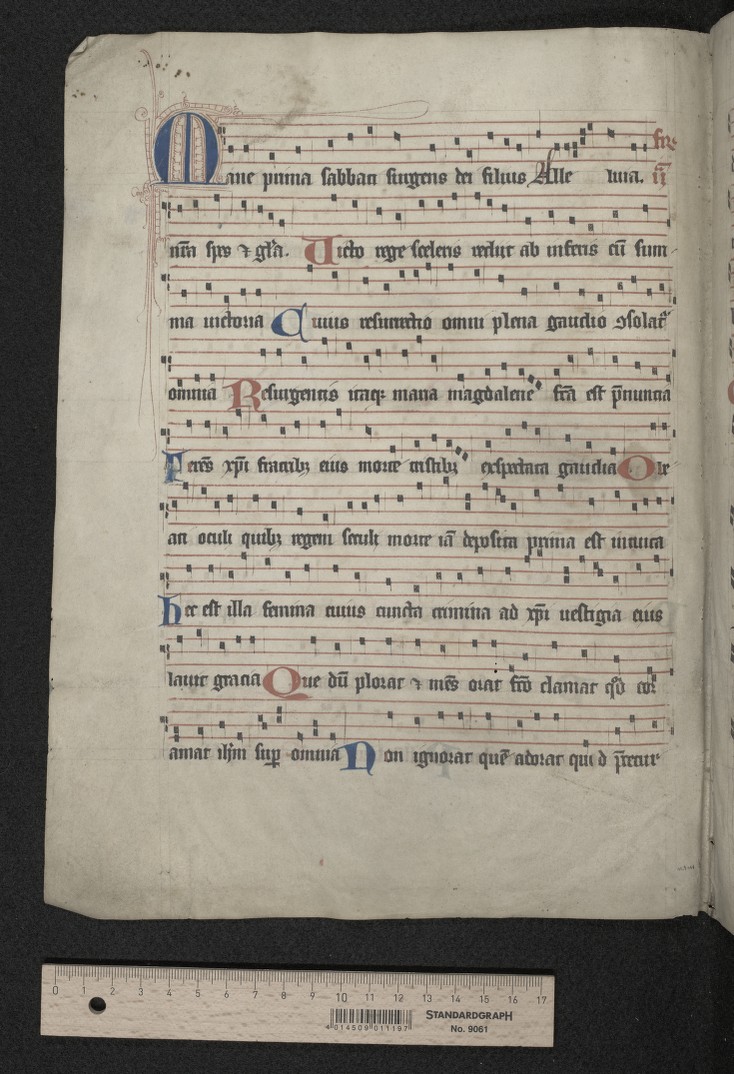 Mane prima sabbati surgens dei filius Alle luia. fire ij
nr̄a spes ⁊ gl̄a. Uicto rege sceleris rediit ab inferis cū sum
ma uictoria Cuius resurrectio omni plena gaudio ꝯsolat᷑
omnia Resurgentis itaqꝫ maria magdalene fc̄a est p̄nuncia
Ferēs xp̄i fratribꝫ eius morte tristibꝫ exspectata gaudia O be
ati oculi quibꝫ regem seculi morte iā deposita prima est intuita
hec est illa femina cuius cuncta crimina ad xp̄i uestigia eius
lauit gracia Que dū plorat ⁊ mēs orat fc̄o clamat qd̄ cor
amat ih̄m sup̄ omnia Non ignorat quē adorat quid p̄cetur
0 1 2 3 4 5 6 7 8 9 10 11 12 13 14 15 16 17
4 014509 011197
STANDARDGRAPH
No. 9061